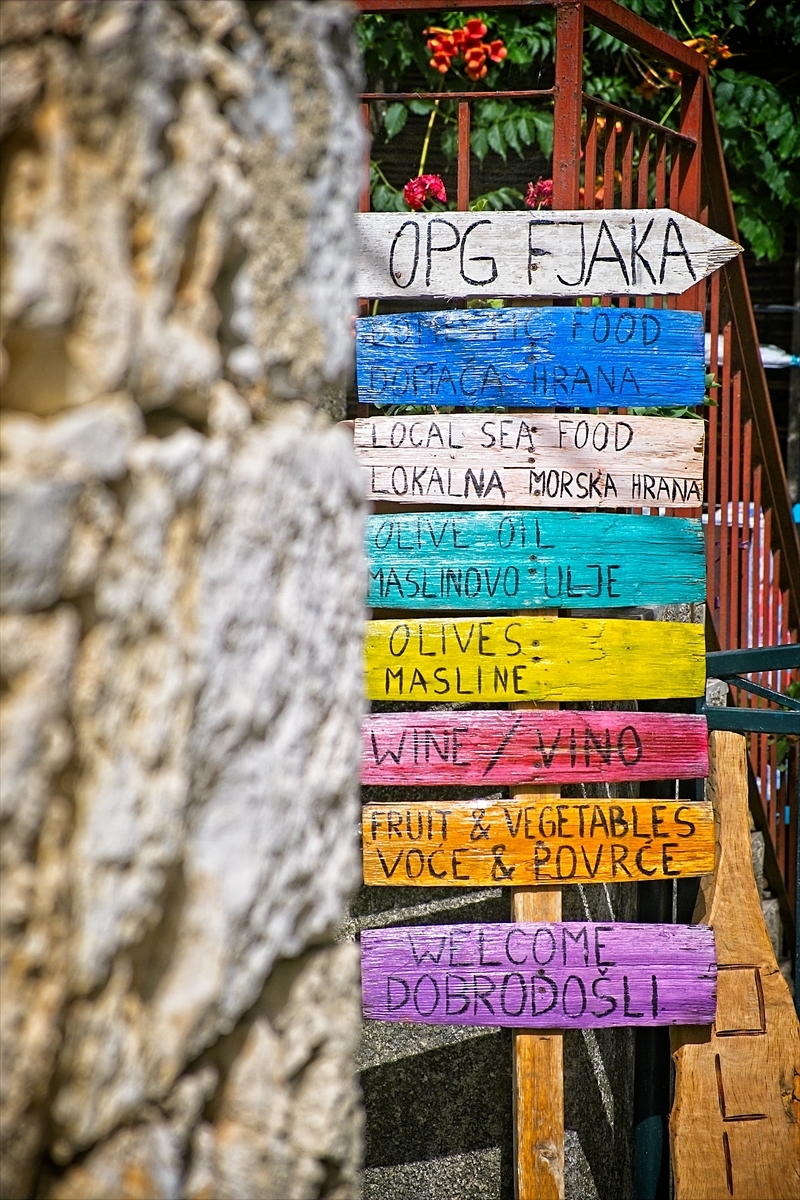 OPG FJAKA
DOMESTIC FOOD
DOMAĆA HRANA
LOCAL SEA FOOD
LOKALNA MORSKA HRANA
OLIVE OIL
MASLINOVO ULJE
OLIVES
MASLINE
WINE / VINO
FRUIT & VEGETABLES
VOĆE & POVRĆE
WELCOME
DOBRODOŠLI